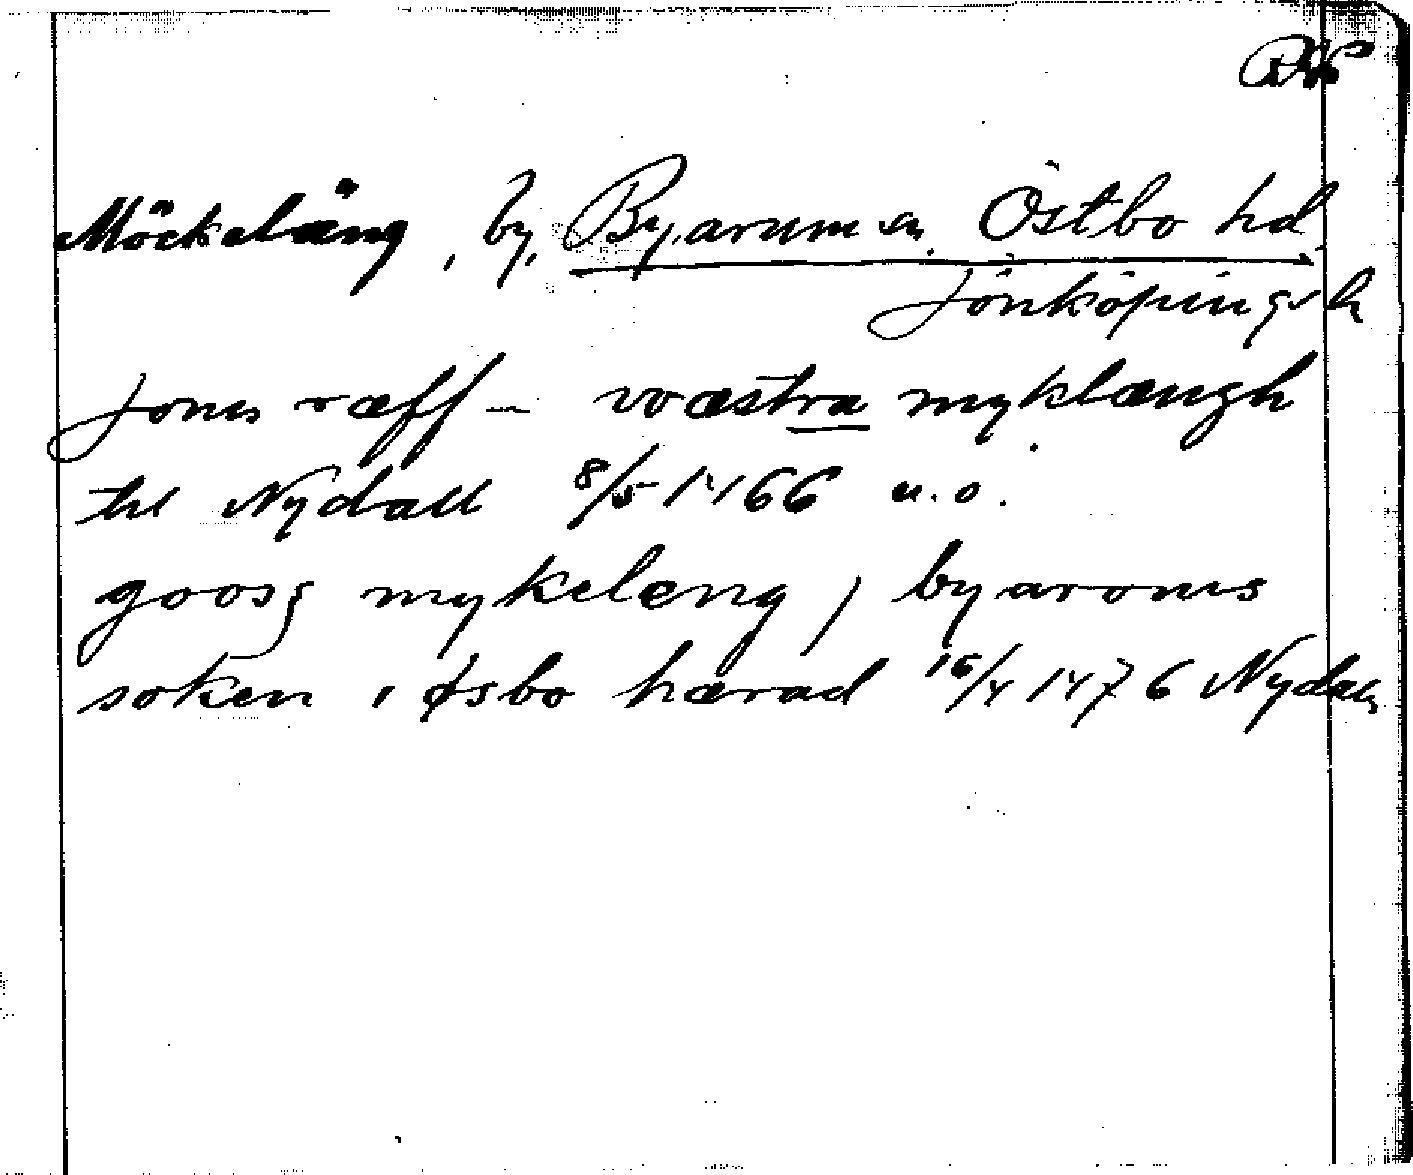 Möckeläng, by, Byarum sn. Östbo hd
Jönköpings l
Jonis ræff – wæstra myklængh
til Nydall 8/5 1466 u.o.
goosz mykeleng, byaroms
soken i øsbo hærad 15/4 1476 Nydala